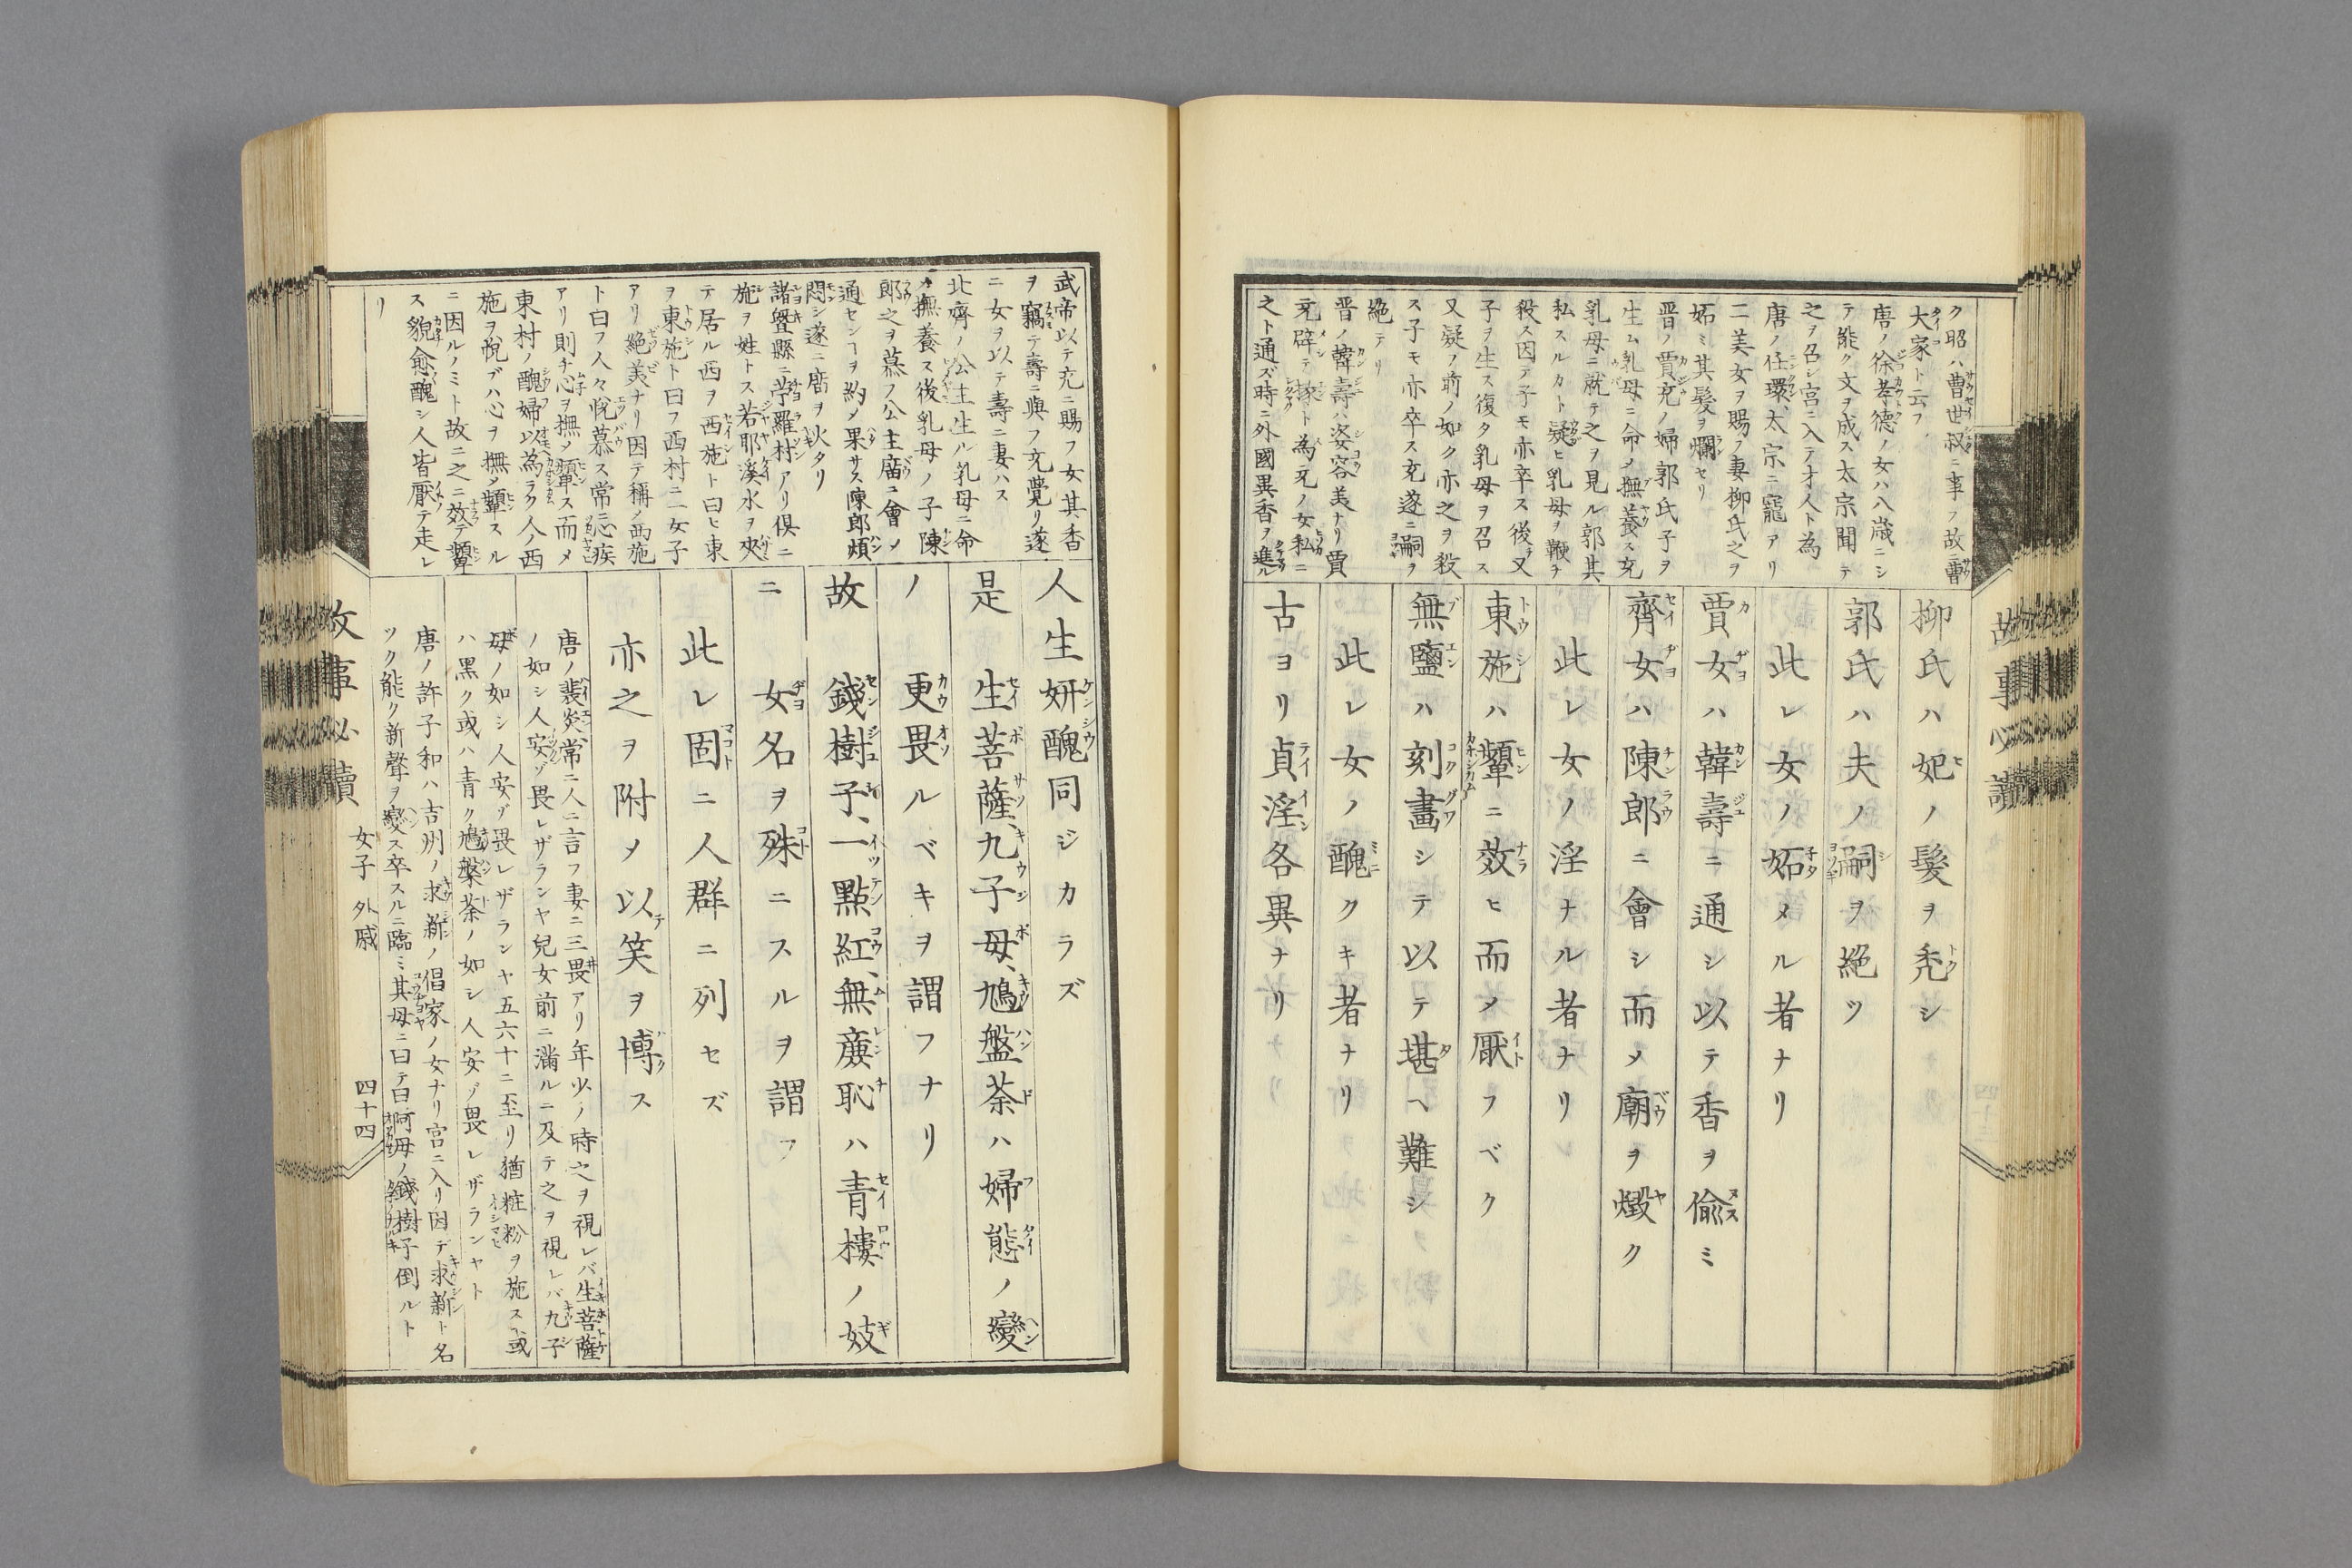 ク昭ハ曹世叔ニ事フ故ニ曹
大家ト云フ
唐ノ徐孝德ノ女ハ八歳ニシ
テ能ク文ヲ成ス太宗聞テ
之ヲ召シ宮ニ入テ才人ト為
唐ノ任環、太宗ニ寵アリ
二美女ヲ賜フ妻柳氏之ヲ
妬ミ其髮ヲ爛セリ
晋ノ賈充ノ婦郭氏子ヲ
生ム乳母ニ命メ撫養ス充
乳母ニ就テ之ヲ見ル郭其
私スルカト疑ヒ乳母ヲ鞭チ
殺ス因テ子モ亦卒ス後チ又
子ヲ生ス復タ乳母ヲ召ス
又疑フ前ノ如ク亦之ヲ殺
ス子モ亦卒ス充遂ニ嗣ヲ
絶テリ
晋ノ韓壽ハ姿容美ナリ賈
充辟テ掾ト為充ノ女私ニ
之ト通ズ時ニ外國異香ヲ進ル
柳氏ハ妃ノ髮ヲ禿シ
郭氏ハ夫ノ嗣ヲ絶ツ
此レ女ノ妬メル者ナリ
賈女ハ韓壽ニ通シ以テ香ヲ偸ミ
齊女ハ陳郎ニ會シ而メ廟ヲ燬ク
此レ女ノ淫ナル者ナリ
東施ハ顰ニ效ヒ而メ厭フベク
無鹽ハ刻畫シテ以テ堪ヘ難シ
此レ女ノ醜クキ者ナリ
古ヨリ貞淫各異ナリ
故事必讀
武帝以テ充ニ賜フ女其香
ヲ竊テ壽ニ與フ充覺リ遂
ニ女ヲ以テ壽ニ妻ハス
北齊ノ公主生ル乳母ニ命
メ撫養ス後乳母ノ子陳
郎之ヲ慕フ公主廟ニ會メ
通センヿヲ約メ果サス陳郎煩
悶シ遂ニ廟ヲ火タリ
諸曁縣ニ苧羅村アリ倶ニ
施ヲ姓トス若耶溪水ヲ夾
テ居ル西ヲ西施ト曰ヒ東
ヲ東施ト曰フ西村ニ一女子
アリ絶美ナリ因テ稱メ西施
ト曰フ人々悅慕ス常ニ心疾
アリ則チ心ヲ撫メ顰ス而メ
東村ノ醜婦以為ラク人ノ西
施ヲ悅ブハ心ヲ撫メ顰スル
ニ因ルノミト故ニ之ニ效テ顰
ス貌愈醜シ人皆厭テ走レ
リ
人生妍醜同ジカラズ
是生菩薩、九子母、鳩盤荼ハ婦態ノ變
ノ更畏ルベキヲ謂フナリ
故錢樹子、一點紅、無廉恥ハ青樓ノ妓
ニ女名ヲ殊ニスルヲ謂フ
此レ固ニ人群ニ列セズ
亦之ヲ附メ以笑ヲ博ス
唐ノ裴炎、常ニ人ニ言フ妻ニ三畏アリ年少ノ時之ヲ視レバ生菩薩
ノ如シ人安ゾ畏レザランヤ兒女前ニ滿ルニ及テ之ヲ視レバ九子
母ノ如シ人安ゾ畏レザランヤ五六十ニ至リ猶粧粉ヲ施スト或
ハ黒ク或ハ青ク鳩槃荼ノ如シ人安ゾ畏レザランヤト
唐ノ許子和ハ吉州ノ永新ノ倡家ノ女ナリ宮ニ入リ因テ永新ト名
ツク能ク新聲ヲ變ス卒スルニ臨ミ其母ニ曰テ曰阿母ノ錢樹子倒ルト
故事必讀 女子 外戚 四十四